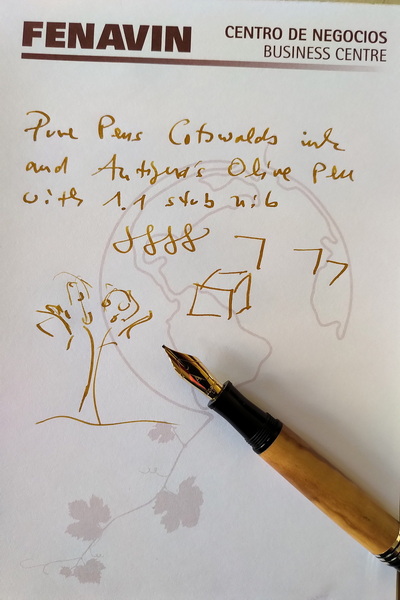 FENAVIN
CENTRO DE NEGOCIOS
BUSINESS CENTRE
Pure Pens Cotswolds ink
and Antiqua's Olive Pen
with 1.1 stub nib